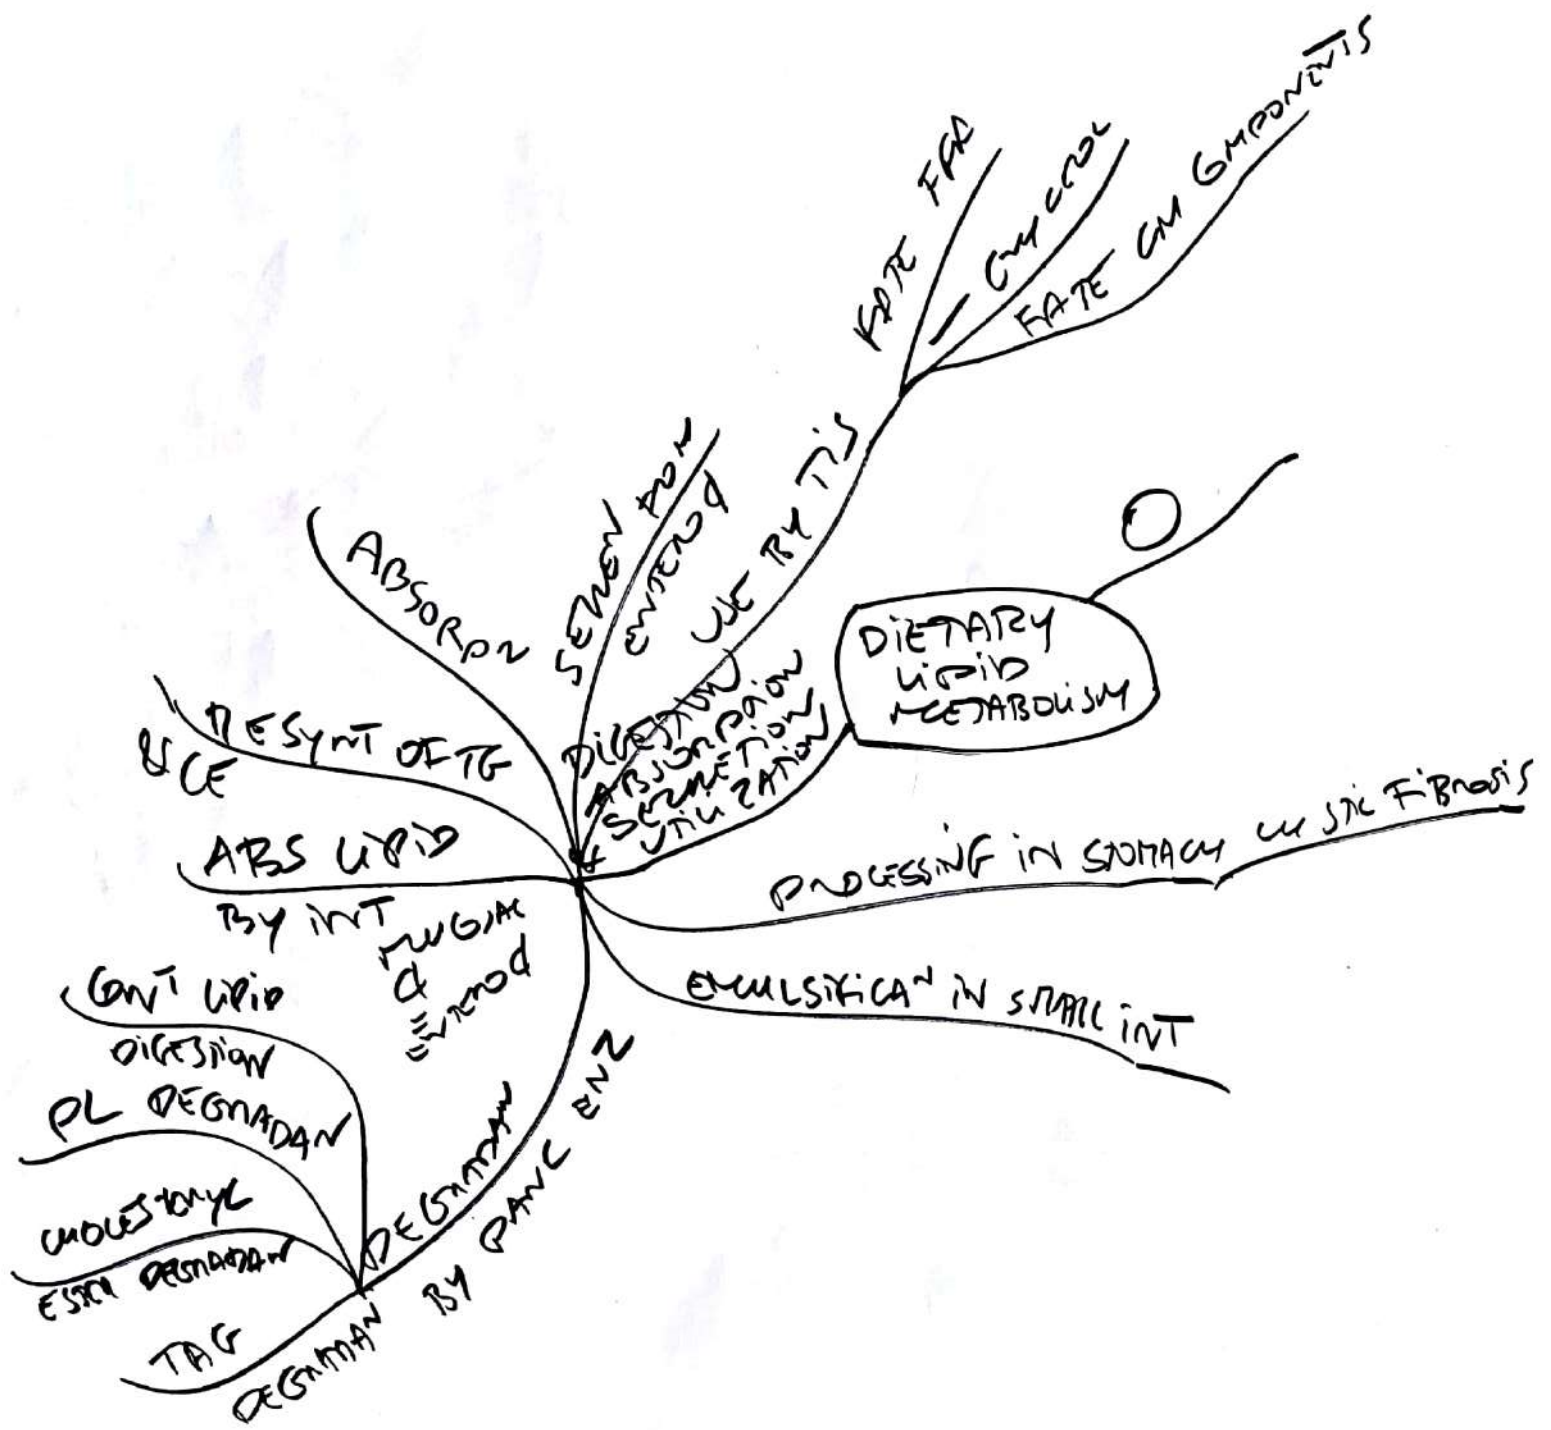 DIETARY
LIPID
METABOLISM
O
DIGESTION
ABSORPTION
SECRETION
& UTILIZATION
PROCESSING IN STOMACH
CYSTIC FIBROSIS
EMULSIFICAN IN SMALL INT
DEGRADAN
BY PANC ENZ
TAG
DEGRADAN
CHOLESTERYL
ESTER DEGRADAN
PL DEGRADAN
CONT LIPID
DIGESTION
ABS LIPID
BY INT
MUCOSAL
ENTERO
RESYNT OF TG
& CE
ABSORPN
FROM
ENTERO
USE BY TIS
FATE FFA
— GLYCEROL
FATE CM COMPONENTS